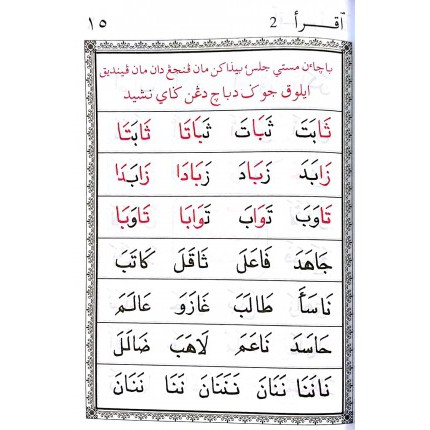 اقرأ 2 ١٥
باچاءن مستي جلس، بيذاكن مان ڤنجڠ دان مان ڤينديق
ايلوق جوݢ دباچ دڠن ݢاي نشيد
ثَابَتَ ثَبَاتَ ثَبَاتَا ثَابَتَا
زَابَدَ زَبَادَ زَبَادَا زَابَدَا
تَاوَبَ تَوَابَ تَوَابَا تَاوَبَا
جَاهَدَ فَاعَلَ ثَاقَلَ كَاتَبَ
نَاسَأَ طَالَبَ غَازَوَ عَالَمَ
حَاسَدَ نَاعَمَ لَاهَبَ ضَالَلَ
نَانَنَا نَنَانَ نَنَنَانَ نَنَا نَنَانَ